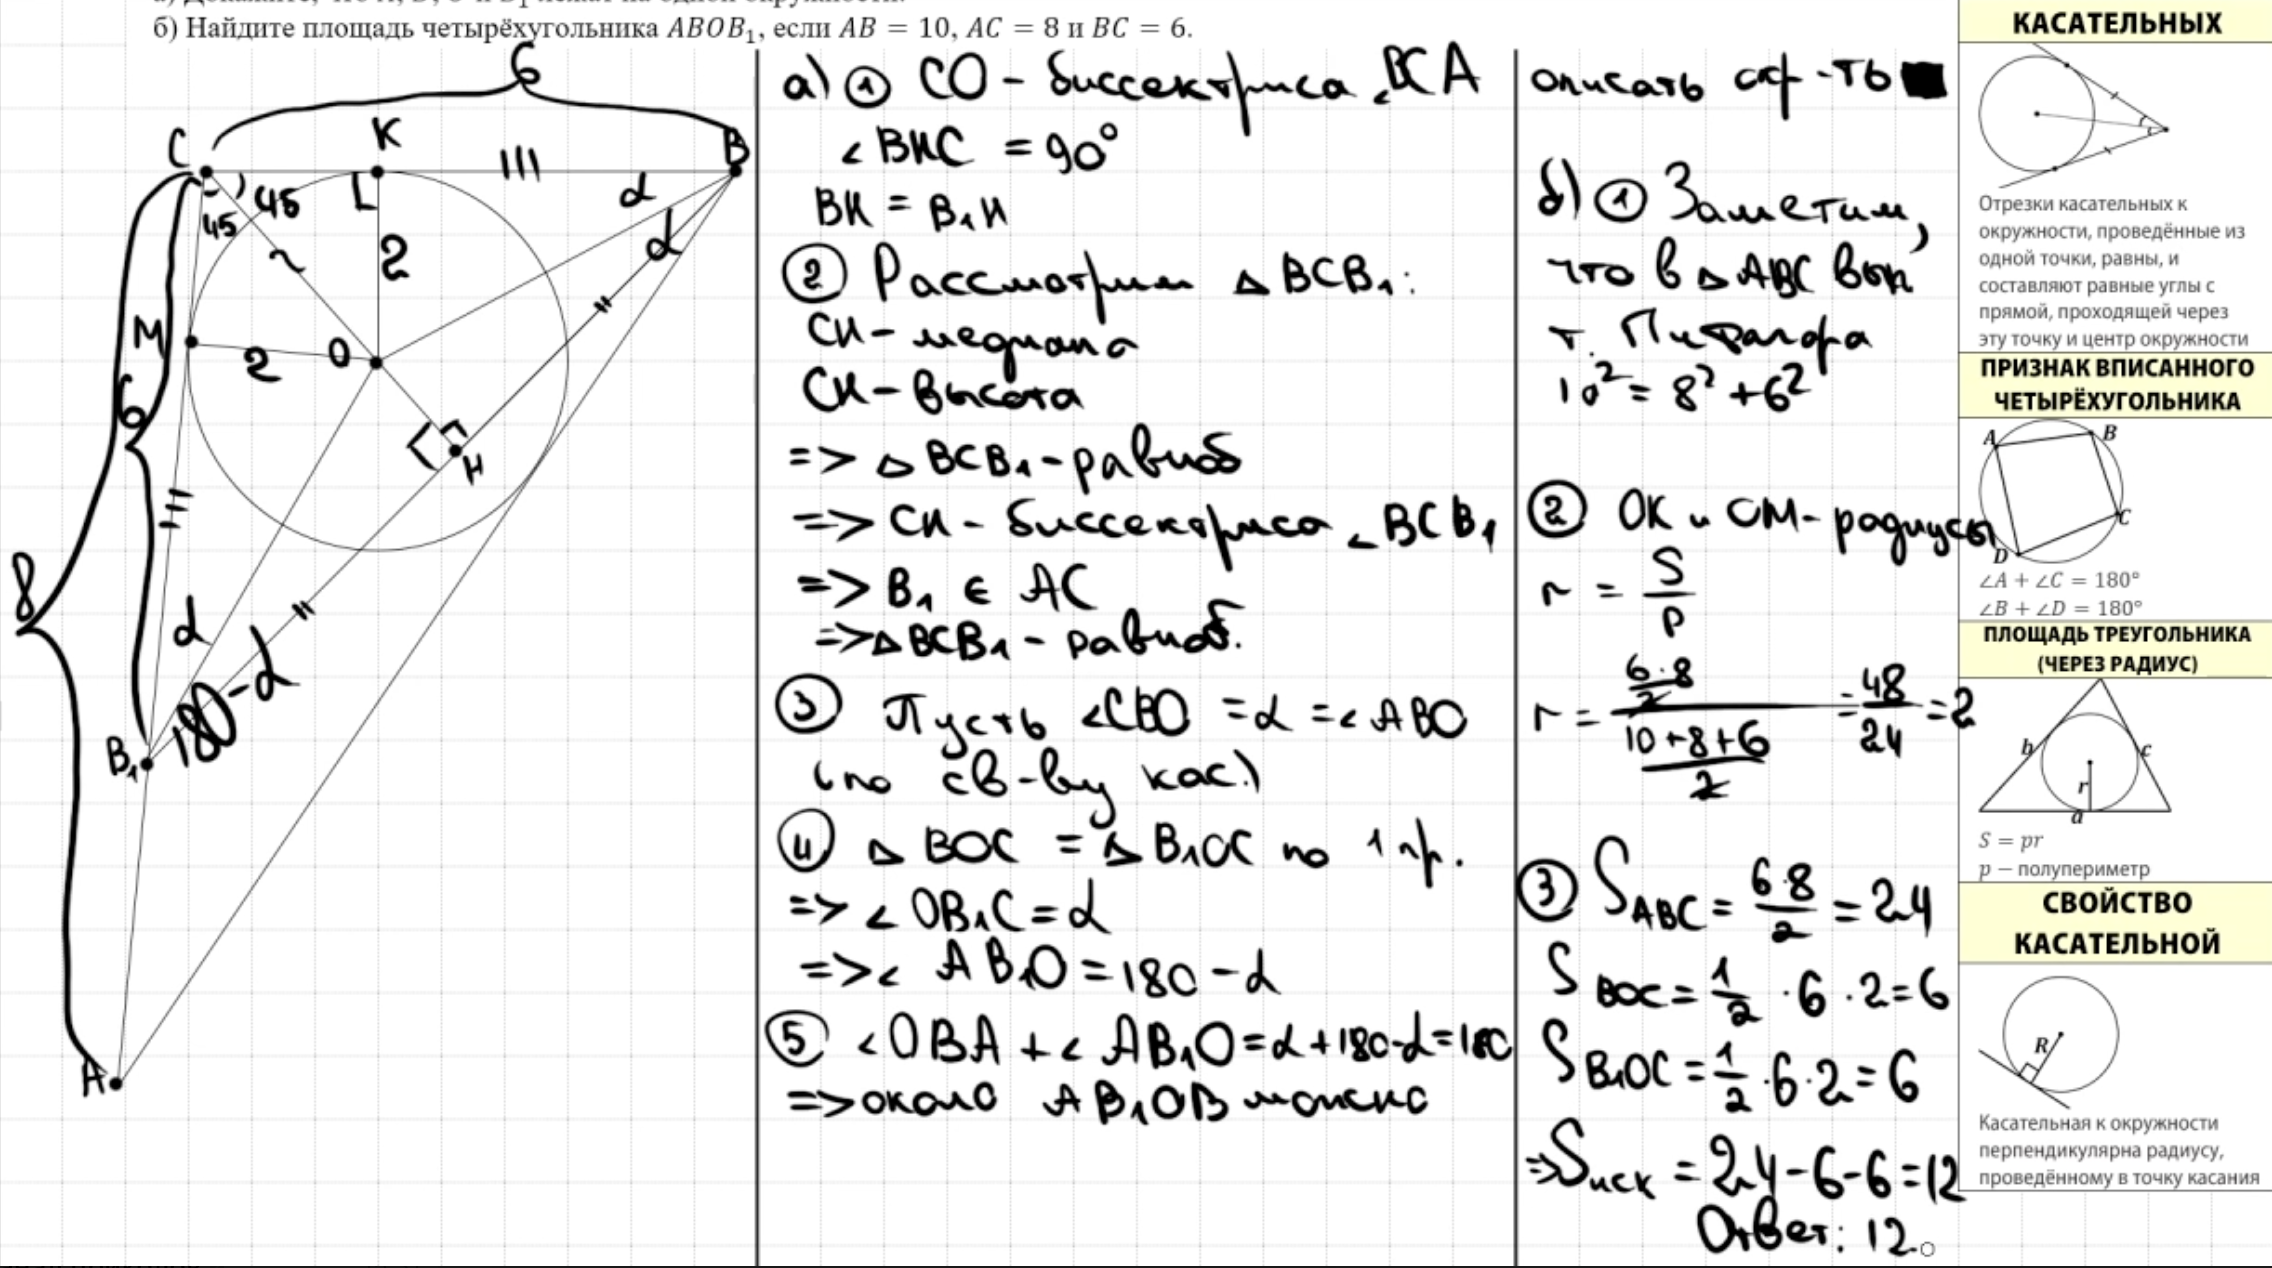 б) Найдите площадь четырёхугольника ABOB₁, если AB = 10, AC = 8 и BC = 6.
6
C
K
B
45
45
2
α
α
M
2
O
6
H
8
α
180-α
B₁
A
а) ① CO - биссектриса ∠BCA
∠BHC = 90°
BH = B₁H
② Рассмотрим △BCB₁:
CH - медиана
CH - высота
=> △BCB₁ - равноб
=> CH - биссектриса ∠BCB₁
=> B₁ ∈ AC
=> △BCB₁ - равноб.
③ Пусть ∠CBO = α = ∠ABO
(по св-ву кас.)
④ △BOC = △B₁OC по 1 пр.
=> ∠OB₁C = α
=> ∠AB₁O = 180 - α
⑤ ∠OBA + ∠AB₁O = α + 180 - α = 180
=> около AB₁OB можно
описать окр-ть ■
б) ① Заметим,
что в △ABC вып
т. Пифагора
10² = 8² + 6²
② OK и OM - радиусы
r = S/P
r = (6·8/2)/((10+8+6)/2) = 48/24 = 2
③ S ABC = 6·8/2 = 24
S BOC = 1/2 · 6 · 2 = 6
S B₁OC = 1/2 · 6 · 2 = 6
=> S иск = 24 - 6 - 6 = 12
Ответ: 12.
КАСАТЕЛЬНЫХ
Отрезки касательных к
окружности, проведённые из
одной точки, равны, и
составляют равные углы с
прямой, проходящей через
эту точку и центр окружности
ПРИЗНАК ВПИСАННОГО
ЧЕТЫРЁХУГОЛЬНИКА
A
B
C
D
∠A + ∠C = 180°
∠B + ∠D = 180°
ПЛОЩАДЬ ТРЕУГОЛЬНИКА
(ЧЕРЕЗ РАДИУС)
b
c
r
a
S = pr
p — полупериметр
СВОЙСТВО
КАСАТЕЛЬНОЙ
R
Касательная к окружности
перпендикулярна радиусу,
проведённому в точку касания